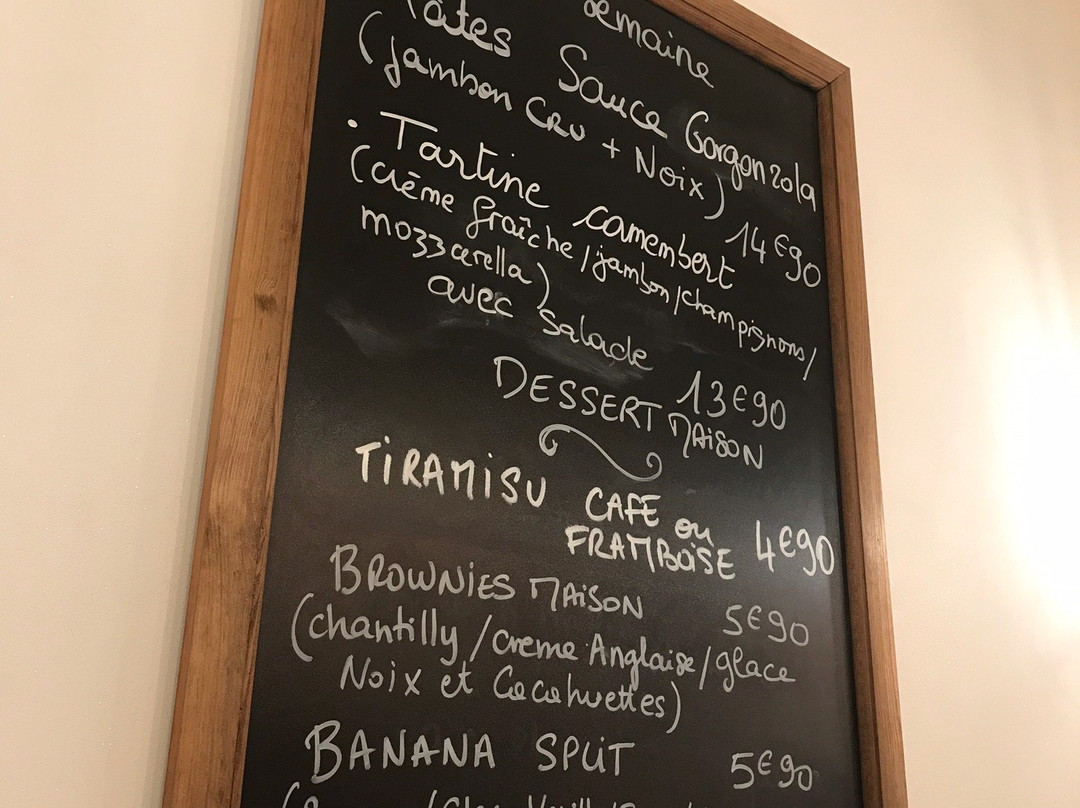 Semaine
Pâtes Sauce Gorgonzola
(jambon CRU + Noix) 14€90
• Tartine camembert
(crème fraîche/jambon/champignons/
mozzarella)
avec salade 13€90
DESSERT MAISON
TIRAMISU CAFE ou
FRAMBOISE 4€90
BROWNIES MAISON 5€90
(chantilly/creme Anglaise/glace
Noix et Cacahuettes)
BANANA SPLIT 5€90